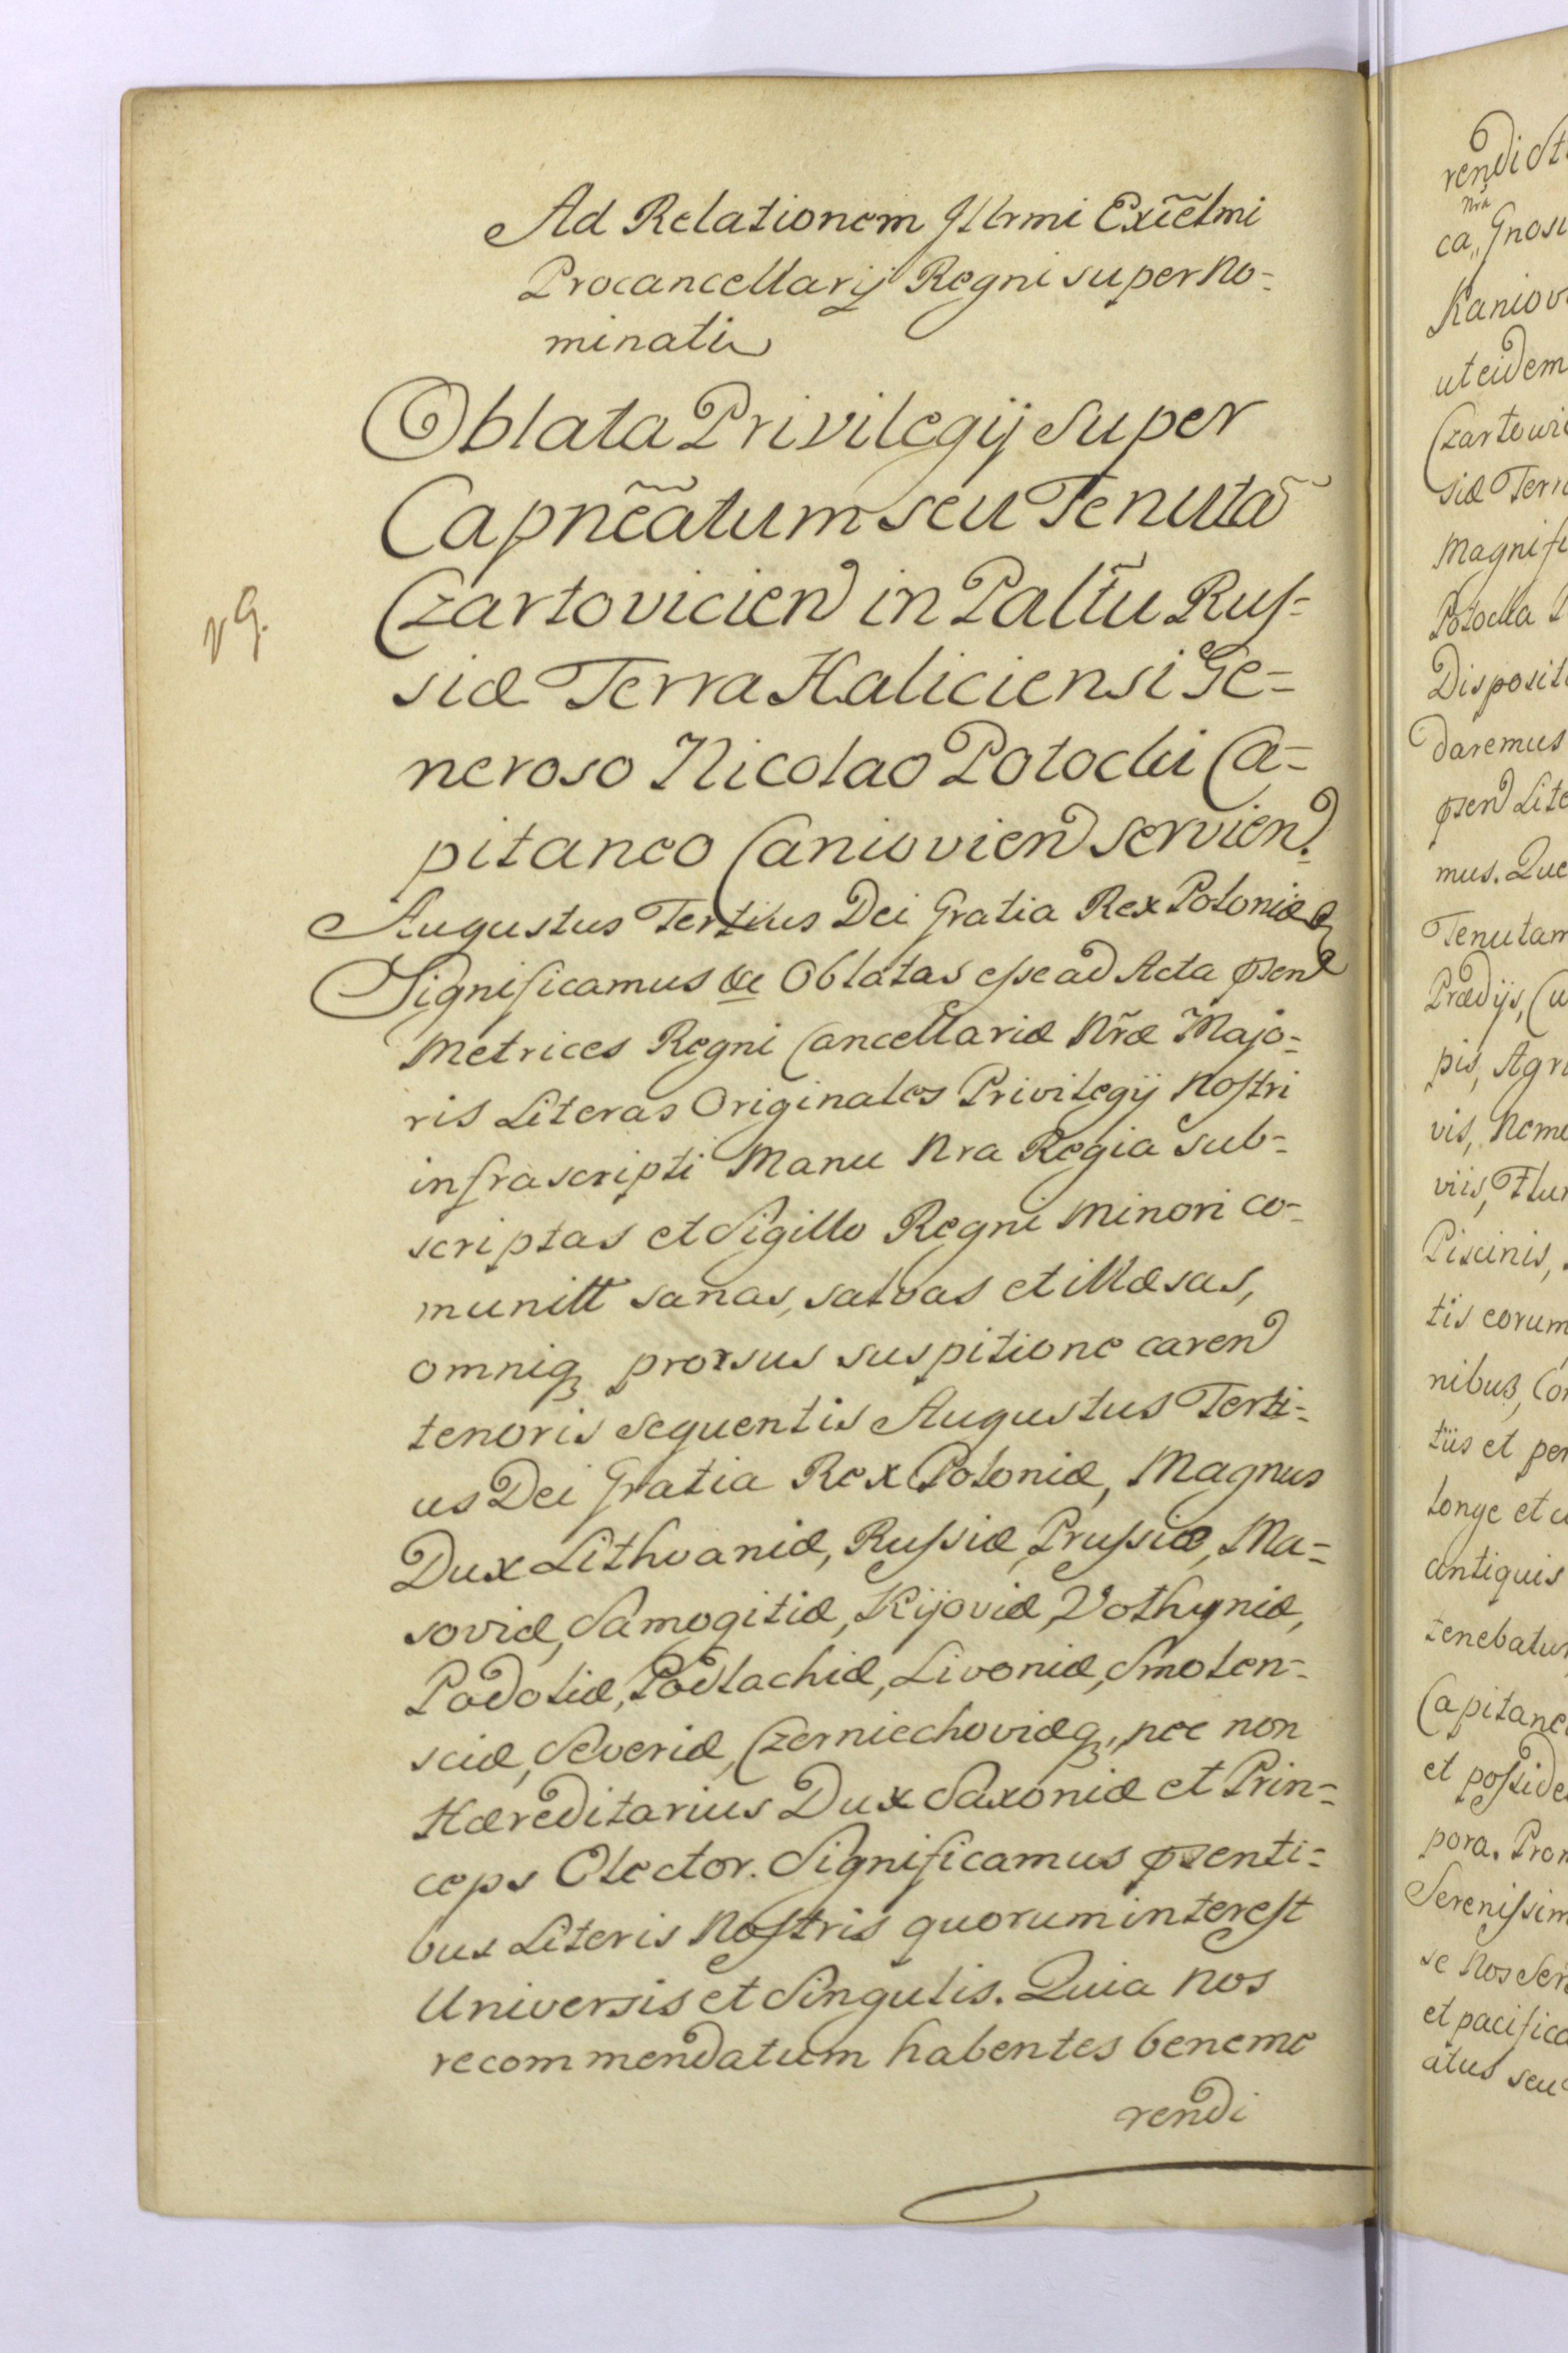 Ad Relationem Illrmi Excẽlmi
Procancellarij Regni super no-
minati
Oblata Privilegij super
Capnẽatum seu Tenutã
Czartovicien in Paltũ Rus-
siæ Terra Haliciensi Ge-
neroso Nicolao Potocki Ca-
pitaneo Caniovien servien.
v G.
Augustus Tertius Dei Gratia Rex Poloniæ &
Significamus &c Oblatas esse ad Acta pſen
Metrices Regni Cancellariæ Nr̃æ Majo-
ris Literas Originales Privilegij Nostri
infrascripti Manu Nra Regia sub-
scriptas et Sigillo Regni Minori co-
munitt sanas, salvas et illæsas,
omniq prorsus suspitione caren
tenoris sequentis Augustus Terti-
us Dei Gratia Rex Poloniæ, Magnus
Dux Lithvaniæ, Russiæ, Prussiæ, Ma-
soviæ, Samogitiæ, Kijoviæ, Volhyniæ,
Podoliæ, Podlachiæ, Livoniæ, Smolen-
sciæ, Severiæ, Czerniechoviæq, nec non
Hæreditarius Dux Saxoniæ et Prin-
ceps Elector. Significamus pſenti-
bus Literis Nostris quorum interest
Universis et Singulis. Quia Nos
recommendatum habentes beneme
rendi
rendi
nrã
ca, Gnosi
Kaniov
ut eidem
Czartovi
siæ Terr
Magnifi
Potocka
Disposit
daremus
pſen Lite
mus. Que
Tenutam
Prædijs, Cu
pis, Agri
vis, Neme
viis, Flu
Piscinis,
tis eorum
nibus, Co
tiis et per
longe et
antiquis
tenebatur
Capitane
et posside
pora. Pro
Serenissim
se Nos Ser
et pacifica
atus seu